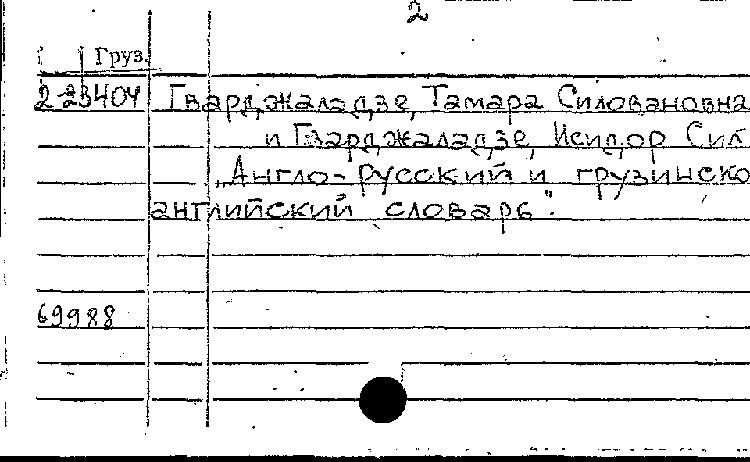 2
Груз.
2-23404 Гварджаладзе, Тамара Силовановна
и Гварджаладзе, Исидор Сил
„Англо-русский и грузинско
английский словарь".
69988